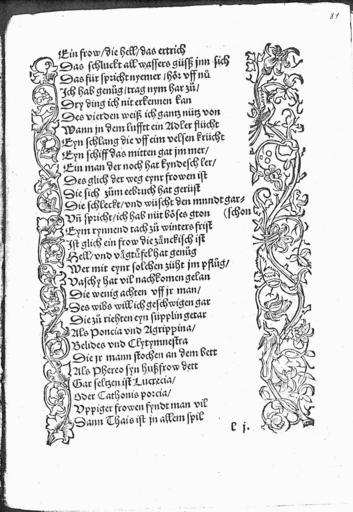 81
Ein frow / die hell / das ertrich
Das schluckt all wassers güß jnn sich
Das für spricht nyemer / hör vff nů
Ich hab genůg / trag nym har zů /
Dry ding ich nit erkennen kan
Des vierden weiß ich gantz nütz von
Wann jn dem lufft ein Adler flücht
Eyn schlang die vff eim velsen krücht
Eyn schiff das mitten gat jm mer /
Ein man der noch hat kyndesch ler /
Des glich der weg eynr frowen ist
Die sich zům eebruch hat gerüst
Die schlecke / vnd wüscht den mundt gar-
Vñ spricht / ich hab nüt böses gton (schon
Eym rynnend tach zů winters frist
Ist glich ein frow die zänckisch ist
Hell / vnd vägtüfel hat genůg
Wer mit eynr solchen zücht jm pflůg /
Vaschy hat vil nachkomen gelan
Die wenig achten vff jr man /
Des wibs will ich geschwigen gar
Die zů richten eyn süpplin getar
Als Poncia vnd Agrippina /
Belides vnd Clytymnestra
Die jr mann stochen an dem bett
Als Phereo syn hußfrow dett
Gar seltzen ist Lucrecia /
Oder Cathonis porcia /
Vppiger frowen fyndt man vil
Dann Thais ist jn allem spil
l j.